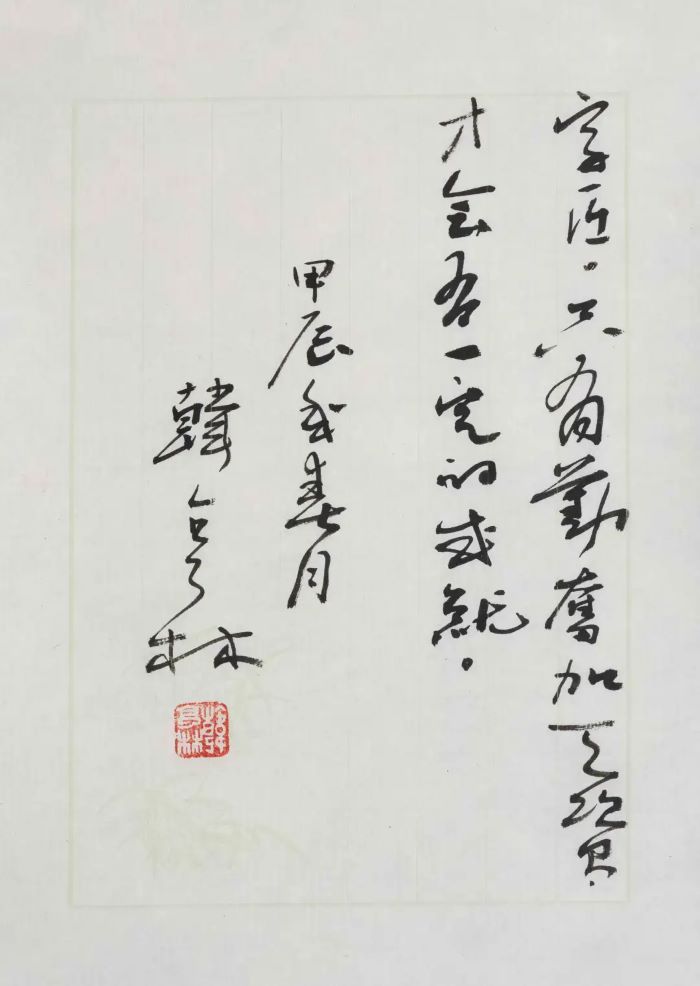 字匠。只有勤奮加天資
才会有一定的成就。
甲辰年春月
韓亨林